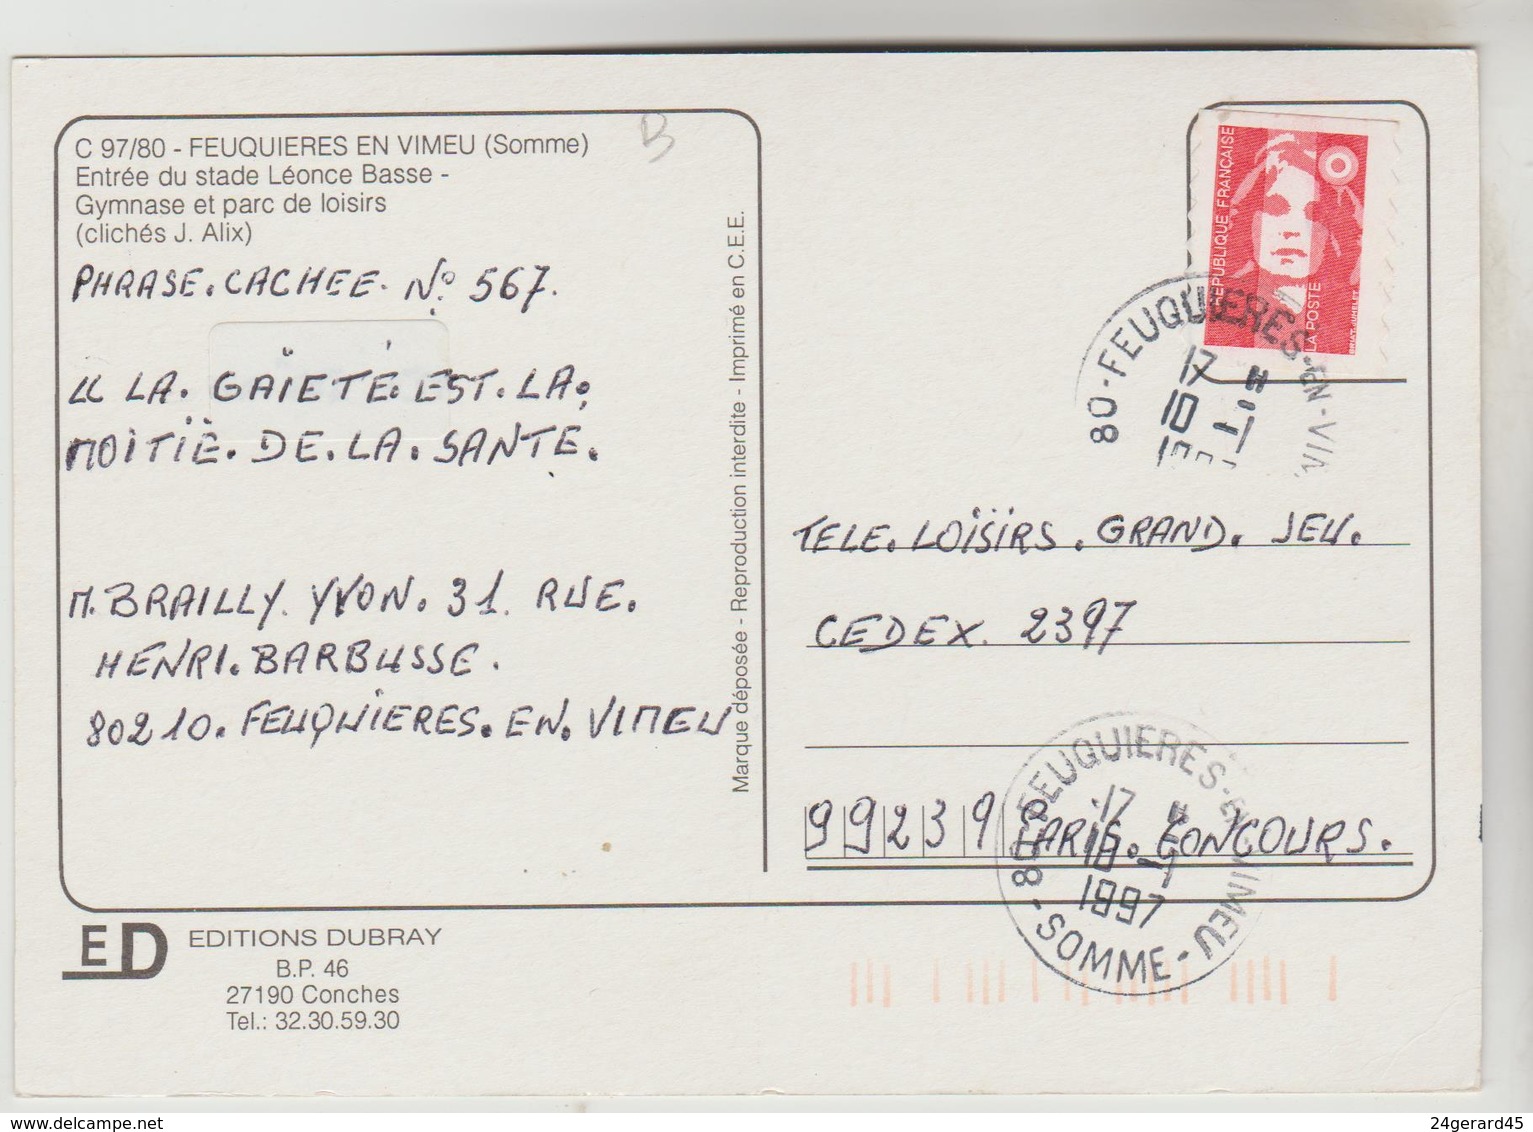 C 97/80 - FEUQUIERES EN VIMEU (Somme)
Entrée du stade Léonce Basse -
Gymnase et parc de loisirs
(clichés J. Alix)
B
PHRASE. CACHEE. N° 567.
« LA. GAÏETÉ. EST. LA.
MOITIÉ. DE. LA. SANTE.
M. BRAILLY. YVON. 31. RUE.
HENRI. BARBUSSE.
80210. FEUQUIERES. EN. VIMEU
Marque déposée - Reproduction interdite - Imprimé en C.E.E.
REPUBLIQUE FRANÇAISE
LA POSTE
80-FEUQUIERES-EN-VIM
17
10
TELE. LOISIRS. GRAND. JEU.
CEDEX. 2397
99239 PARIS. CONCOURS.
80-FEUQUIERES-EN-VIMEU
17
10
1997
-SOMME-
ED EDITIONS DUBRAY
B.P. 46
27190 Conches
Tel.: 32.30.59.30
24gerard45